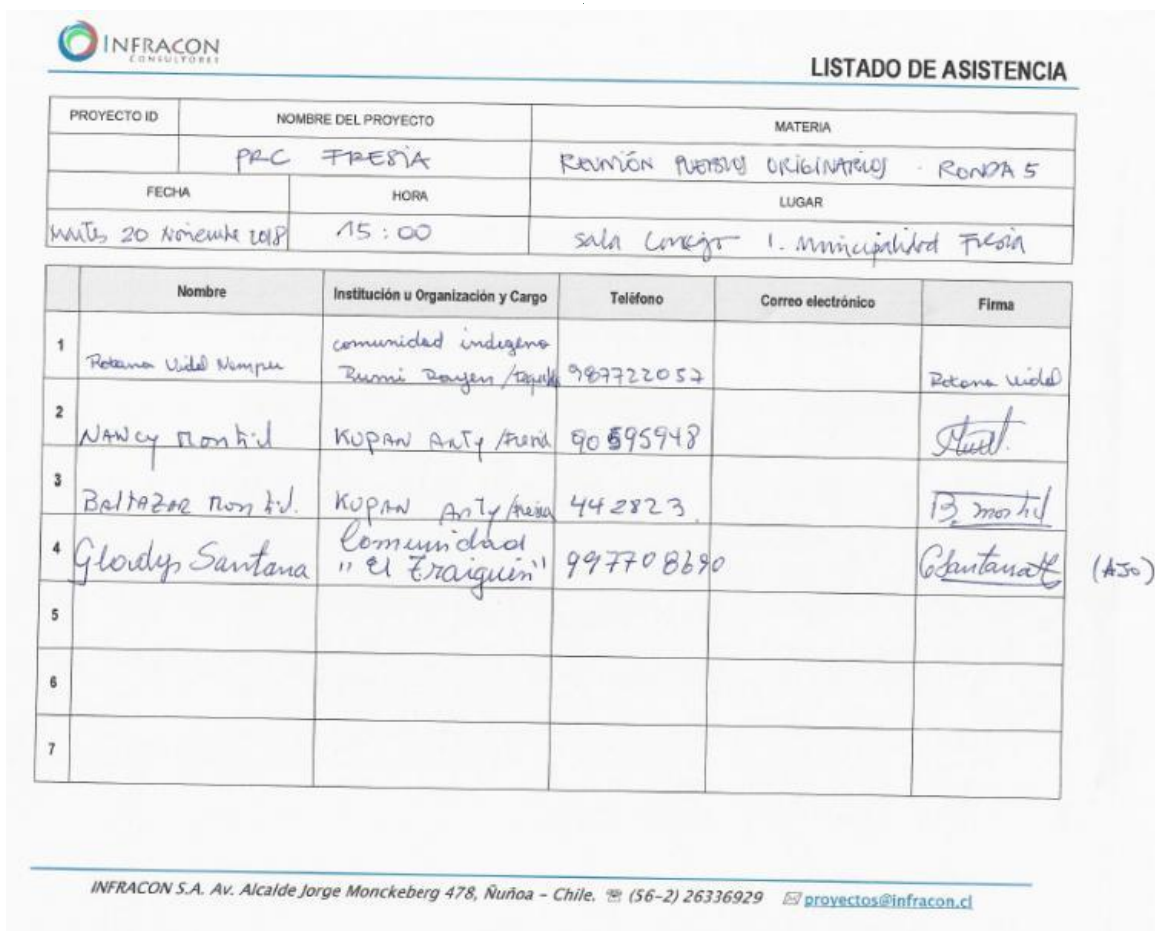 INFRACON
CONSULTORES
LISTADO DE ASISTENCIA
PROYECTO ID NOMBRE DEL PROYECTO MATERIA
PRC FRESIA REUNIÓN PUEBLOS ORIGINARIOS - RONDA 5
FECHA HORA LUGAR
Martes 20 Noviembre 2018 15:00 Sala Concejo I. Municipalidad Fresia
Nombre Institución u Organización y Cargo Teléfono Correo electrónico Firma
1 Vidal comunidad indigena
Rumi Rayen / 987722057 Vidal
2 NANCY Montiel KUPAN ANTY /Fresia 90595948
3 BALTAZAR Montiel. KUPAN Anty /Fresia 442823. B. montiel
4 Gladys Santana Comunidad
"El Traiguen" 997708690 GSantana (AJO)
5
6
7
INFRACON S.A. Av. Alcalde Jorge Monckeberg 478, Ñuñoa – Chile. ☏ (56-2) 26336929 ✉ proyectos@infracon.cl